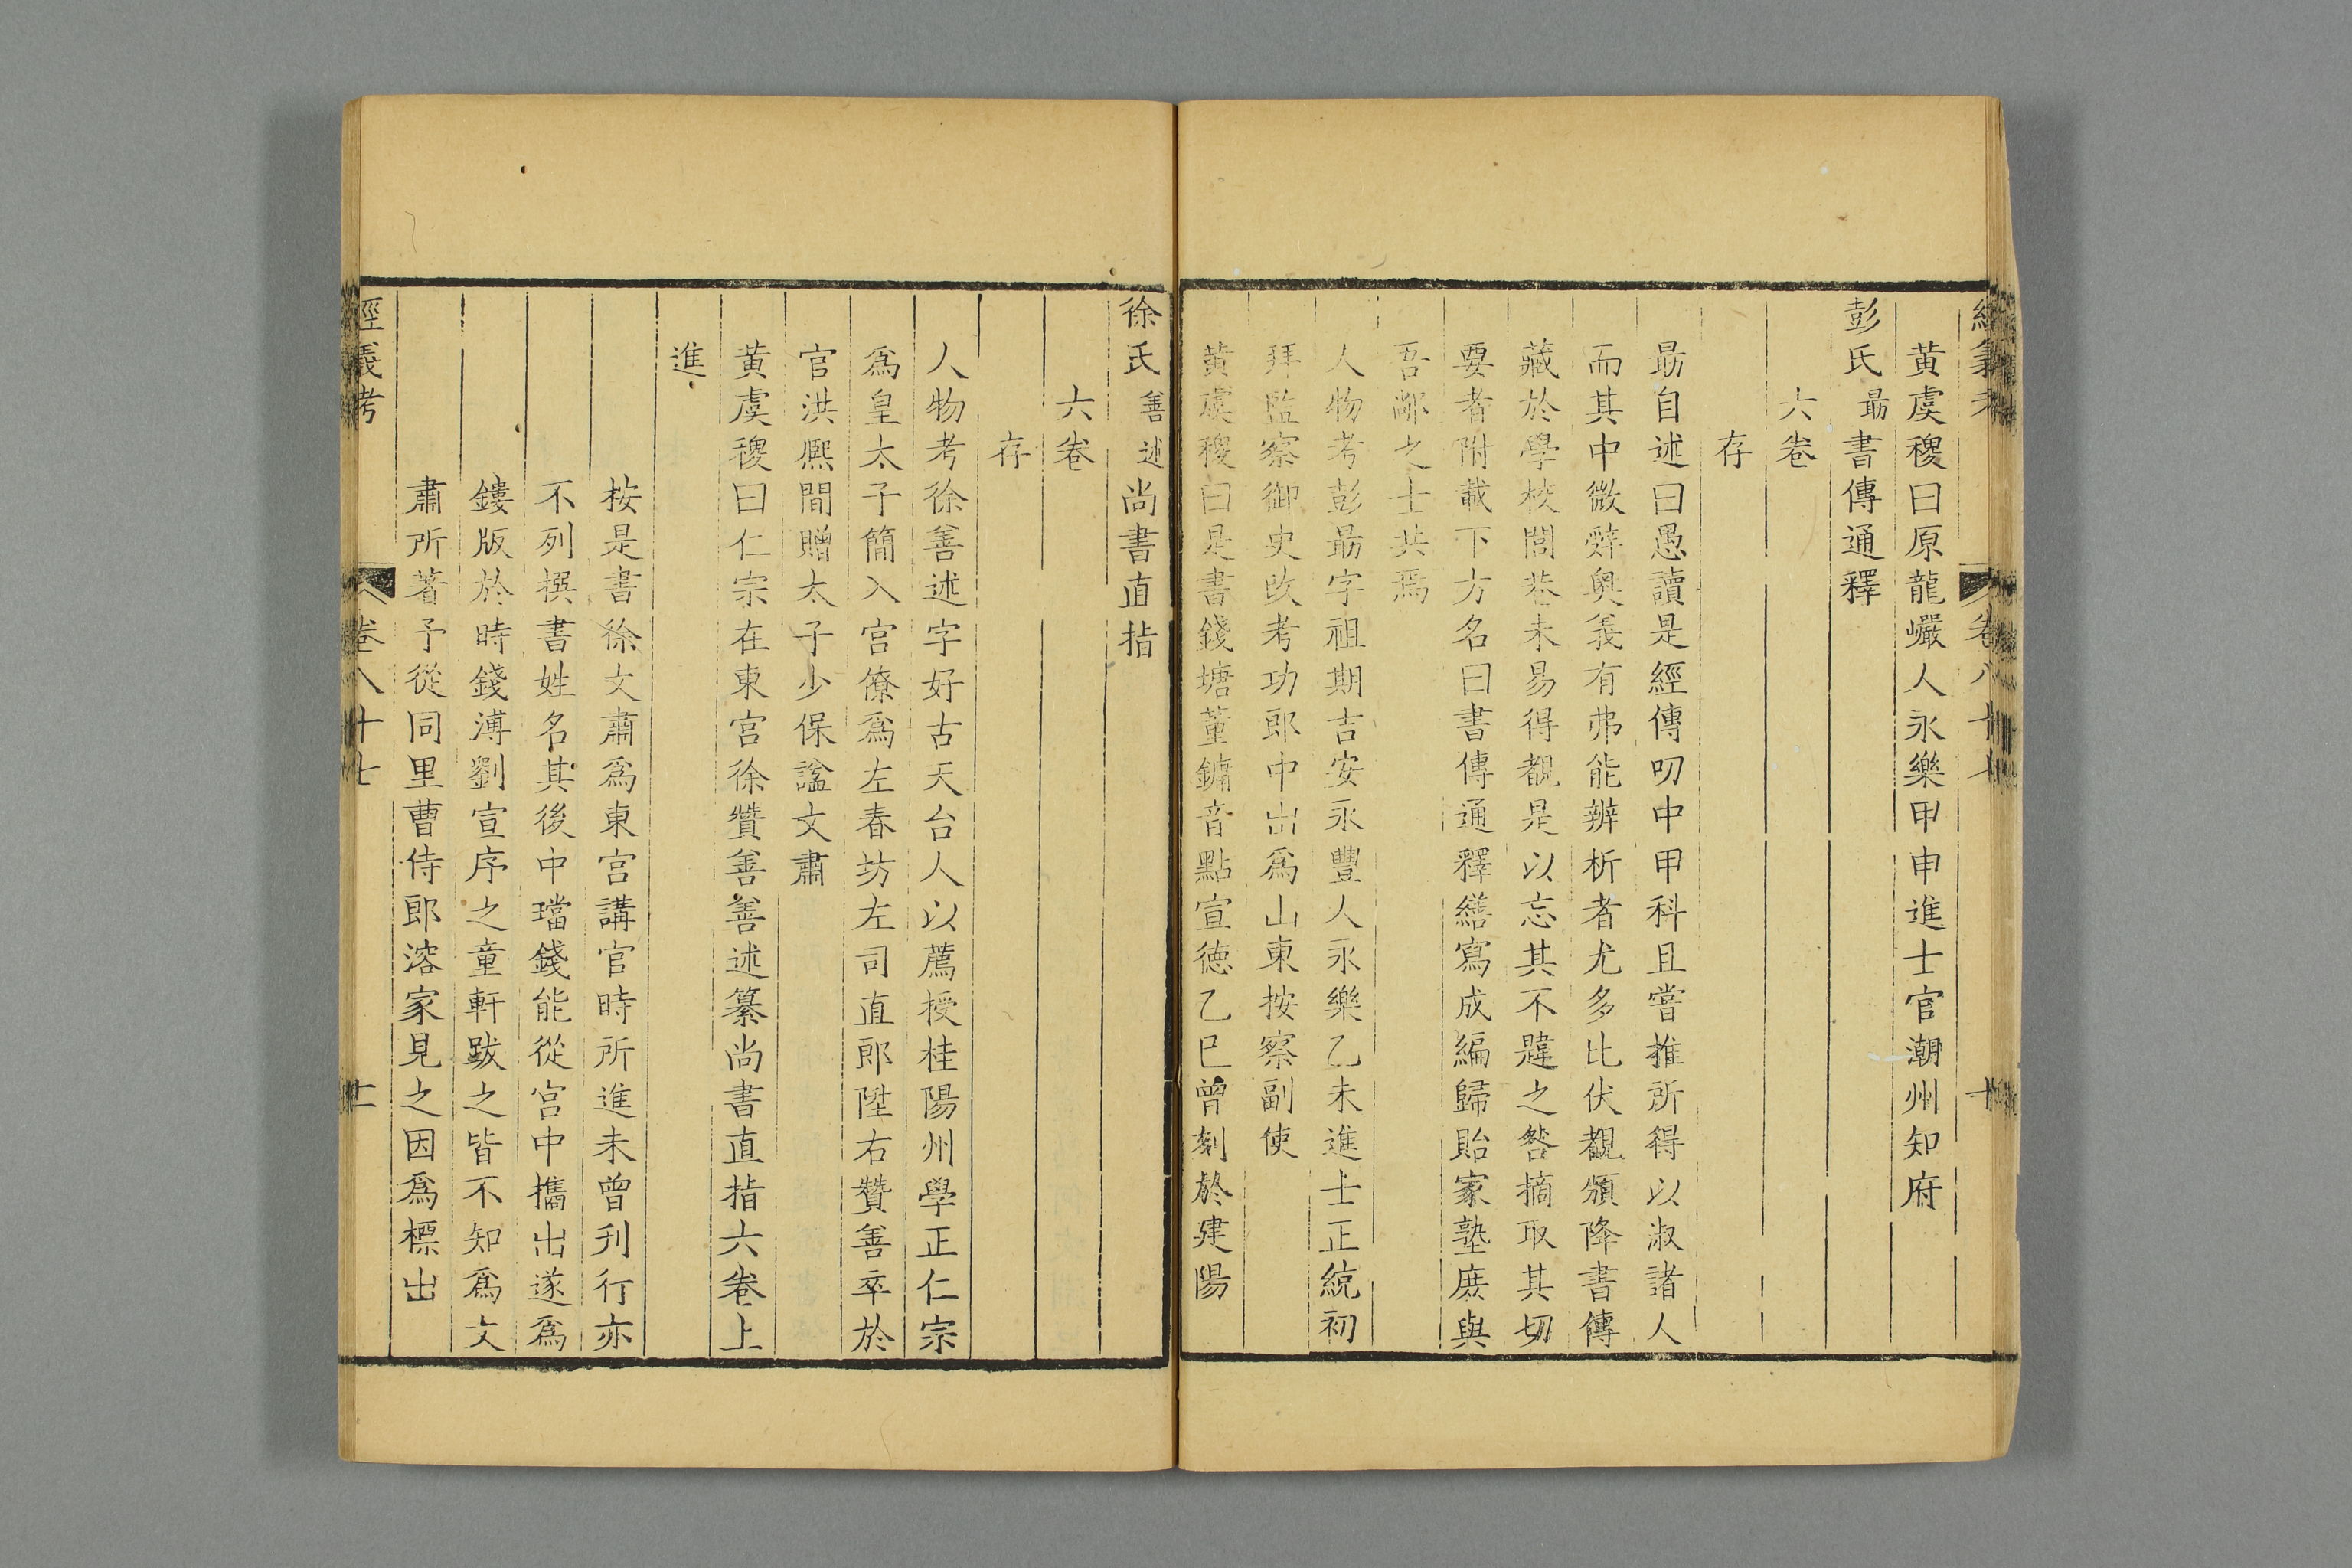 卷八十
黄虞稷曰原龍巗人永樂甲申進士官潮州知府
彭氏勗書傳通釋
六卷
存
勗自述曰愚讀是經傳叨中甲科且嘗推所得以淑諸人
而其中微辭奥義有弗能辨析者尤多比伏覩頒降書傳
藏於學校閭巷未易得覩是以忘其不韙之咎摘取其切
要者附載下方名曰書傳通釋繕寫成編歸貽家塾庶與
吾鄰之士共焉
人物考彭勗字祖期吉安永豐人永樂乙未進士正統初
拜監察御史改考功郎中出爲山東按察副使
黄虞稷曰是書錢塘董鏞音點宣德乙巳曾刻於建陽
徐氏善述尚書直指
六卷
存
人物考徐善述字好古天台人以薦授桂陽州學正仁宗
爲皇太子簡入宫僚爲左春坊左司直郎陞右贊善卒於
官洪熈間贈太子少保諡文肅
黄虞稷曰仁宗在東宫徐贊善善述纂尚書直指六卷上
進
按是書徐文肅爲東宫講官時所進未曾刊行亦
不列撰書姓名其後中璫錢能從宫中攜出遂爲
鏤版於時錢溥劉宣序之童軒跋之皆不知爲文
肅所著予從同里曹侍郎溶家見之因爲標出
經義考 卷八十七